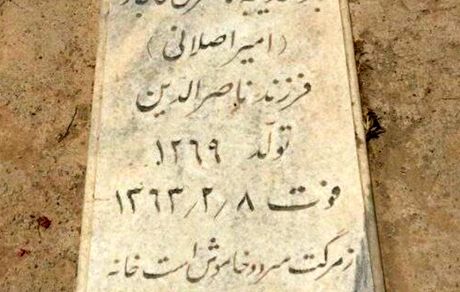 (امیراصلانی)
فرزند ناصرالدین
تولّد ۱۲۶۹
فوت ۱۳۶۳/۲/۸
ز مرگت سرد و خاموش است خانه